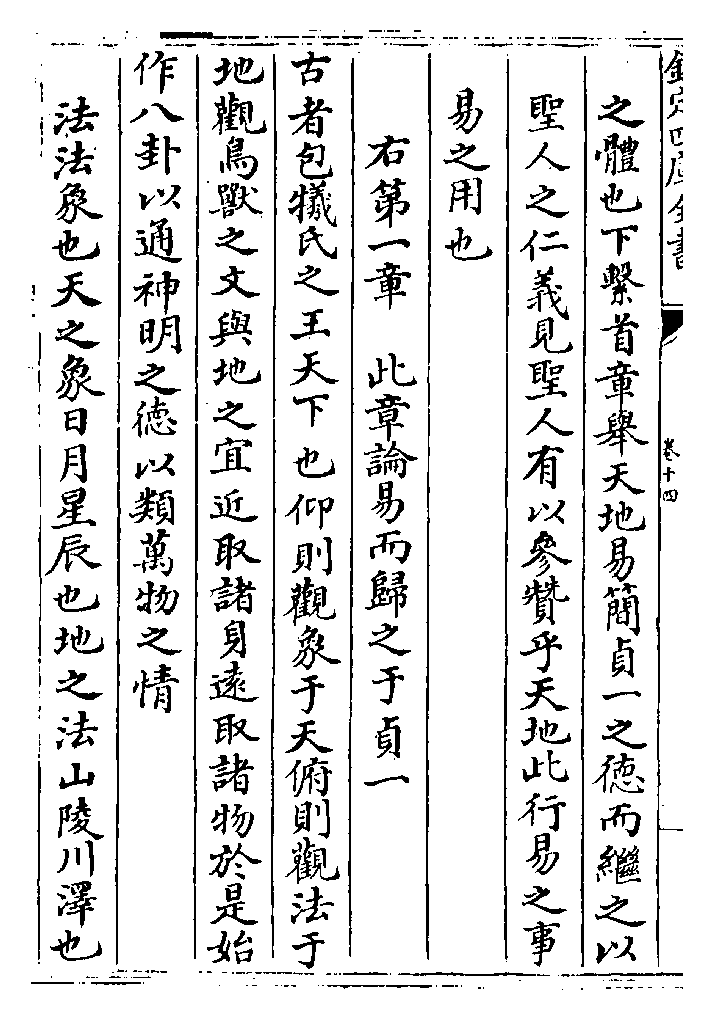 欽定四庫全書
卷十四
之體也下繫首章舉天地易簡貞一之徳而繼之以
聖人之仁義見聖人有以參贊乎天地此行易之事
易之用也
右第一章　此章論易而歸之于貞一
古者包犧氏之王天下也仰則觀象于天俯則觀法于
地觀鳥獸之文與地之宜近取諸身遠取諸物於是始
作八卦以通神明之徳以類萬物之情
法法象也天之象日月星辰也地之法山陵川澤也